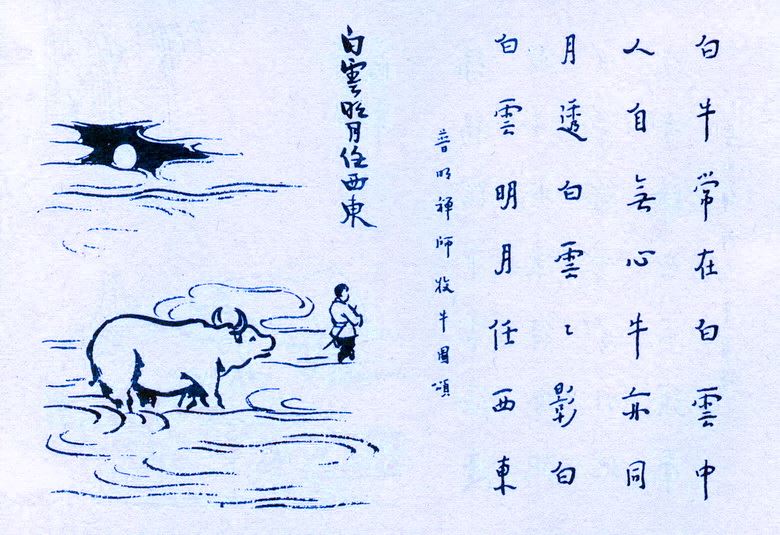 白牛常在白雲中
人自無心牛亦同
月透白雲〻影白
白雲明月任西東
普明禪師牧牛圖頌
白雲明月任西東